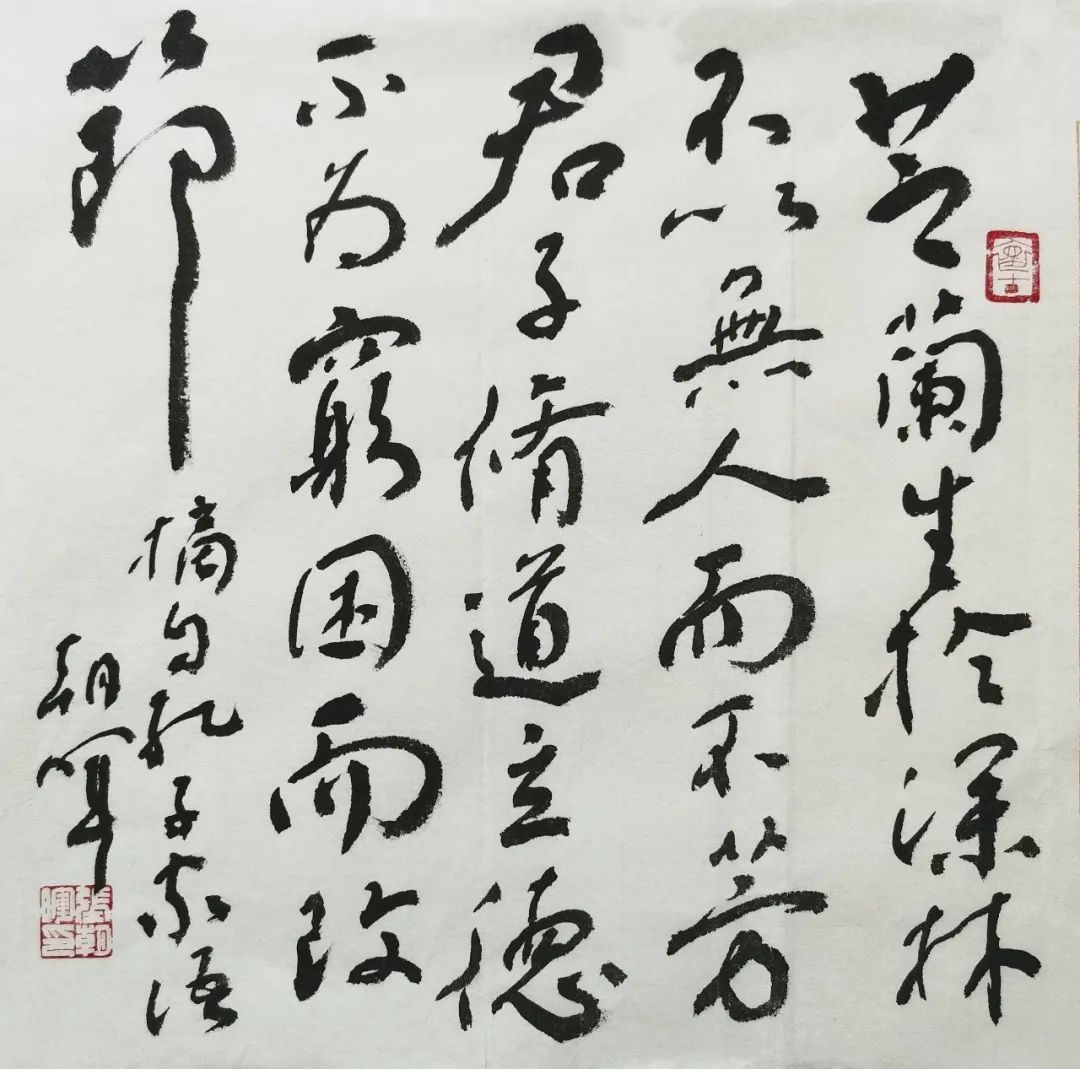 芝蘭生於深林
不以無人而不芳
君子脩道立德
不为窮困而改
節
摘自孔子家語
朝暉
張朝暉印